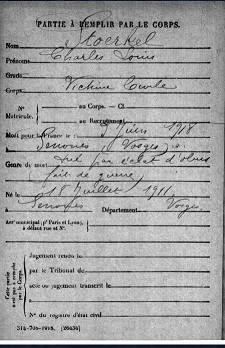 PARTIE À REMPLIR PAR LE CORPS.
Nom Stoerkel
Prénoms Charles Louis
Grade
Corps Victime Civile
N° Matricule. au Corps. — Cl.
au Recrutement
Mort pour la France le 5 Juin 1918
à Senones (Vosges)
Genre de mort tué par éclat d'obus
fait de guerre
Né le 18 Juillet 1911
à Senones Département Vosges
Arr municipal (pr Paris et Lyon), à défaut rue et N°.
Cette partie n'est pas à remplir par le Corps.
Jugement rendu le
par le Tribunal de
acte ou jugement transcrit le
à
N° du registre d'état civil
[26434]